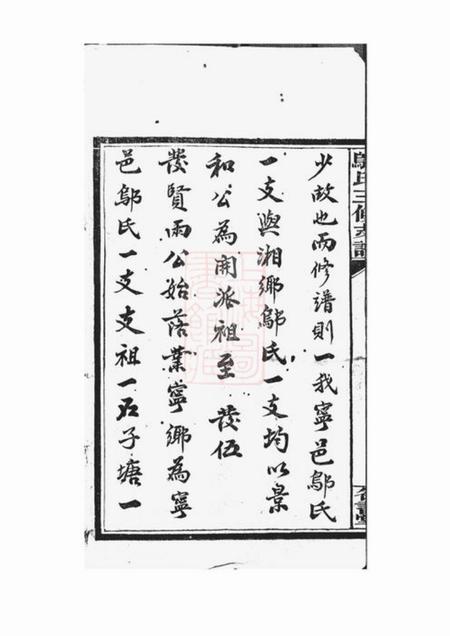 鄔氏三修支譜
少故也而修譜則一我寧邑鄔氏
一支與湘鄉鄔氏一支均以景
和公為開派祖至 發伍
發賢兩公始落業寧鄉為寧
邑鄔氏一支支祖一石子塘一